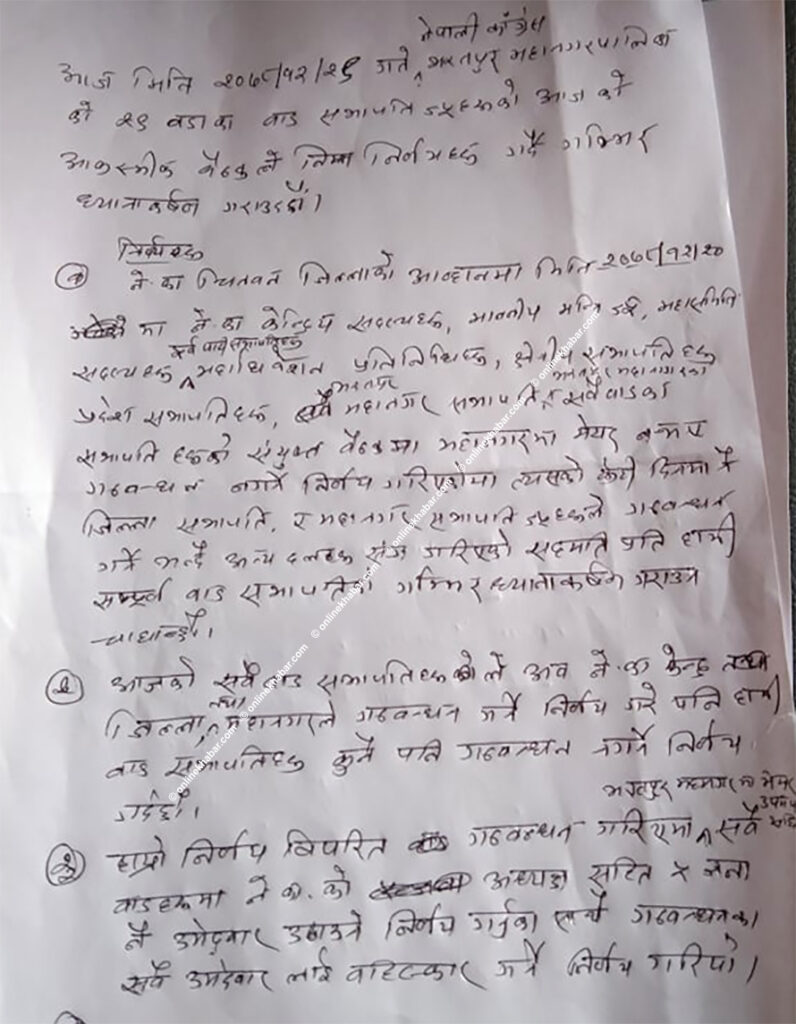 नेपाली काँग्रेस
आज मिति २०७८/१२/२९ गते भरतपुर महानगरपालिका
को २९ वडाका वाड सभापति ज्यूहरुको आज को
आकस्मीक बैठकले निम्न निर्णयहरु गर्दै गम्भिर
ध्यानाकर्षन गराउदछौं।
निर्णयहरु
१ ने. का चितवन जिल्लाको आव्हानमा मिति २०७८/१२/२०
मा ने. का केन्द्रिय सदस्यहरु, माननीय मन्त्रि ज्यू, महासमिति
सदस्यहरु महाधिवेशन प्रतिनिधिहरु, क्षेत्रीय सभापतिहरु
भरतपुर भरतपुर महानगरका
प्रदेश सभापतिहरु, महानगर सभापति, सबै वाडका
सभापति हरुको संयुक्त बैठकमा महानगरमा मेयर
गठबन्धन नगर्ने निर्णय गरिएकोमा त्यसको केही दिनमा नै
जिल्ला सभापति, र महानगर सभापति ज्यूहरुले गठबन्धन
गर्ने भन्दै अन्य दलहरु संग गरिएको सहमति प्रति हामी
सम्पूर्ण वाड सभापतिको गम्भिर ध्यानाकर्षन गराउन
चाहान्छौं।
२ आजको सबै वाड सभापतिहरुले अब ने. का केन्द्र तथा
तथा
जिल्ला, महानगरले गठबन्धन गर्ने निर्णय गरे पनि हामी
वाड सभापतिहरु कुनै पनि गठबन्धन नगर्ने निर्णय
गर्दछौं।
भरतपुर महानगरका मेयर
३ हाम्रो निर्णय विपरित गठबन्धन गरिएमा सबै
वाडहरुमा ने. का. को अध्यक्ष सहित ५ जना
नै उमेदवार उठाउने निर्णय गर्नुका साथै गठबन्धनका
सबै उमेदवार लाई वहिस्कार गर्ने निर्णय गरियो।
© onlinekhabar.com © onlinekhabar.com © onlinekhabar.com © onlinekhabar.com © onlinekhabar.com